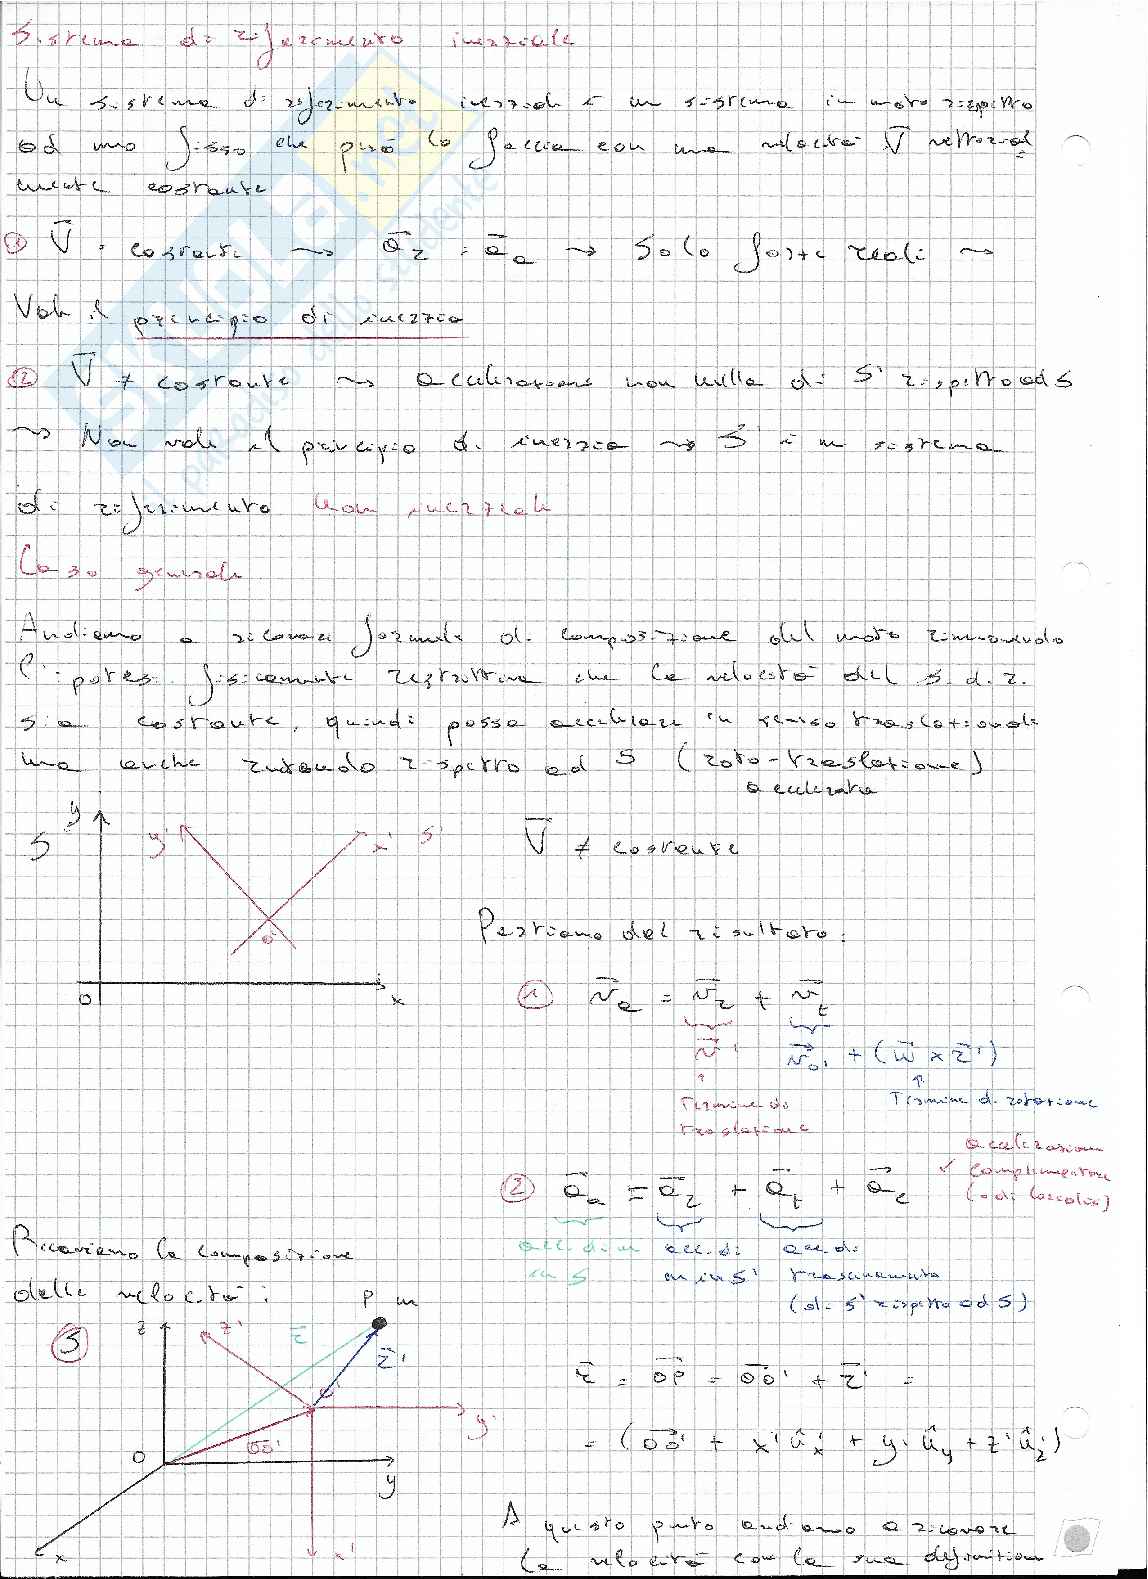 Sistema di riferimento inerziale
Un sistema di riferimento inerziale è un sistema in moto rispetto
ad uno fisso che però lo faccia con una velocità V vettorial
mente costante
① V = costante ⇝ a_r = a_a → Solo forze reali ⇝
Vale il principio di inerzia
② V ≠ costante ⇝ accelerazione non nulla di S' rispetto ad S
⇝ Non vale il principio di inerzia ⇝ S' è un sistema
di riferimento non inerziale
Caso generale
Andiamo a ricavare formule di composizione del moto rimuovendo
l'ipotesi fisicamente restrittiva che la velocità del s.d.r.
sia costante, quindi possa accelerare in senso traslazionale
ma anche ruotando rispetto ad S (roto-traslazione)
accelerata
y
S
y'
x'
S'
o'
O
x
V ≠ costante
Partiamo dal risultato:
① v_a = v_r + v_t
v'
v_o' + (ω × r')
Termine di
traslazione
Termine di rotazione
② a_a = a_r + a_t + a_c
accelerazione
complementare
(o di Coriolis)
acc. di m
in S
acc. di
m in S'
acc. di
trascinamento
(di S' rispetto ad S)
Ricaviamo la composizione
delle velocità:
S
z
z'
r
P m
r'
o'
y'
OO'
O
y
x
x'
r = OP = OO' + r' =
= (OO' + x' û_x' + y' û_y' + z' û_z')
A questo punto andiamo a ricavare
la velocità con la sua definizion
skuola.net
il paradiso dello studente